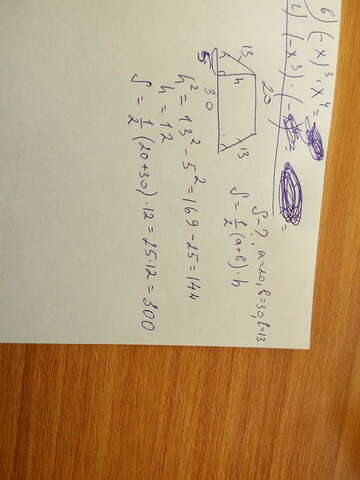 в) (-x)³·x⁴ =
2) (-x³)·(- =
=
13
20
h
5
30
13
S-?, a=20, b=30, l=13
S = 1/2 (a+b)·h
h² = 13² - 5² = 169 - 25 = 144
h = 12
S = 1/2 (20+30)·12 = 25·12 = 300